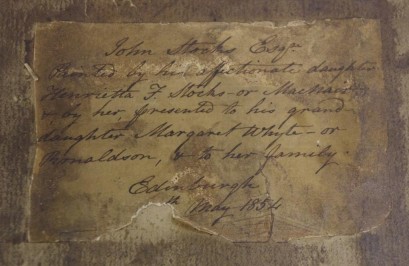 John Stocks Esqr.
Painted by his affectionate daughter
Henrietta F Stocks - or MacNair
& by her, presented to his grand-
daughter Margaret Whyte - or
Ronaldson, & to her family -
Edinburgh
th May 1854